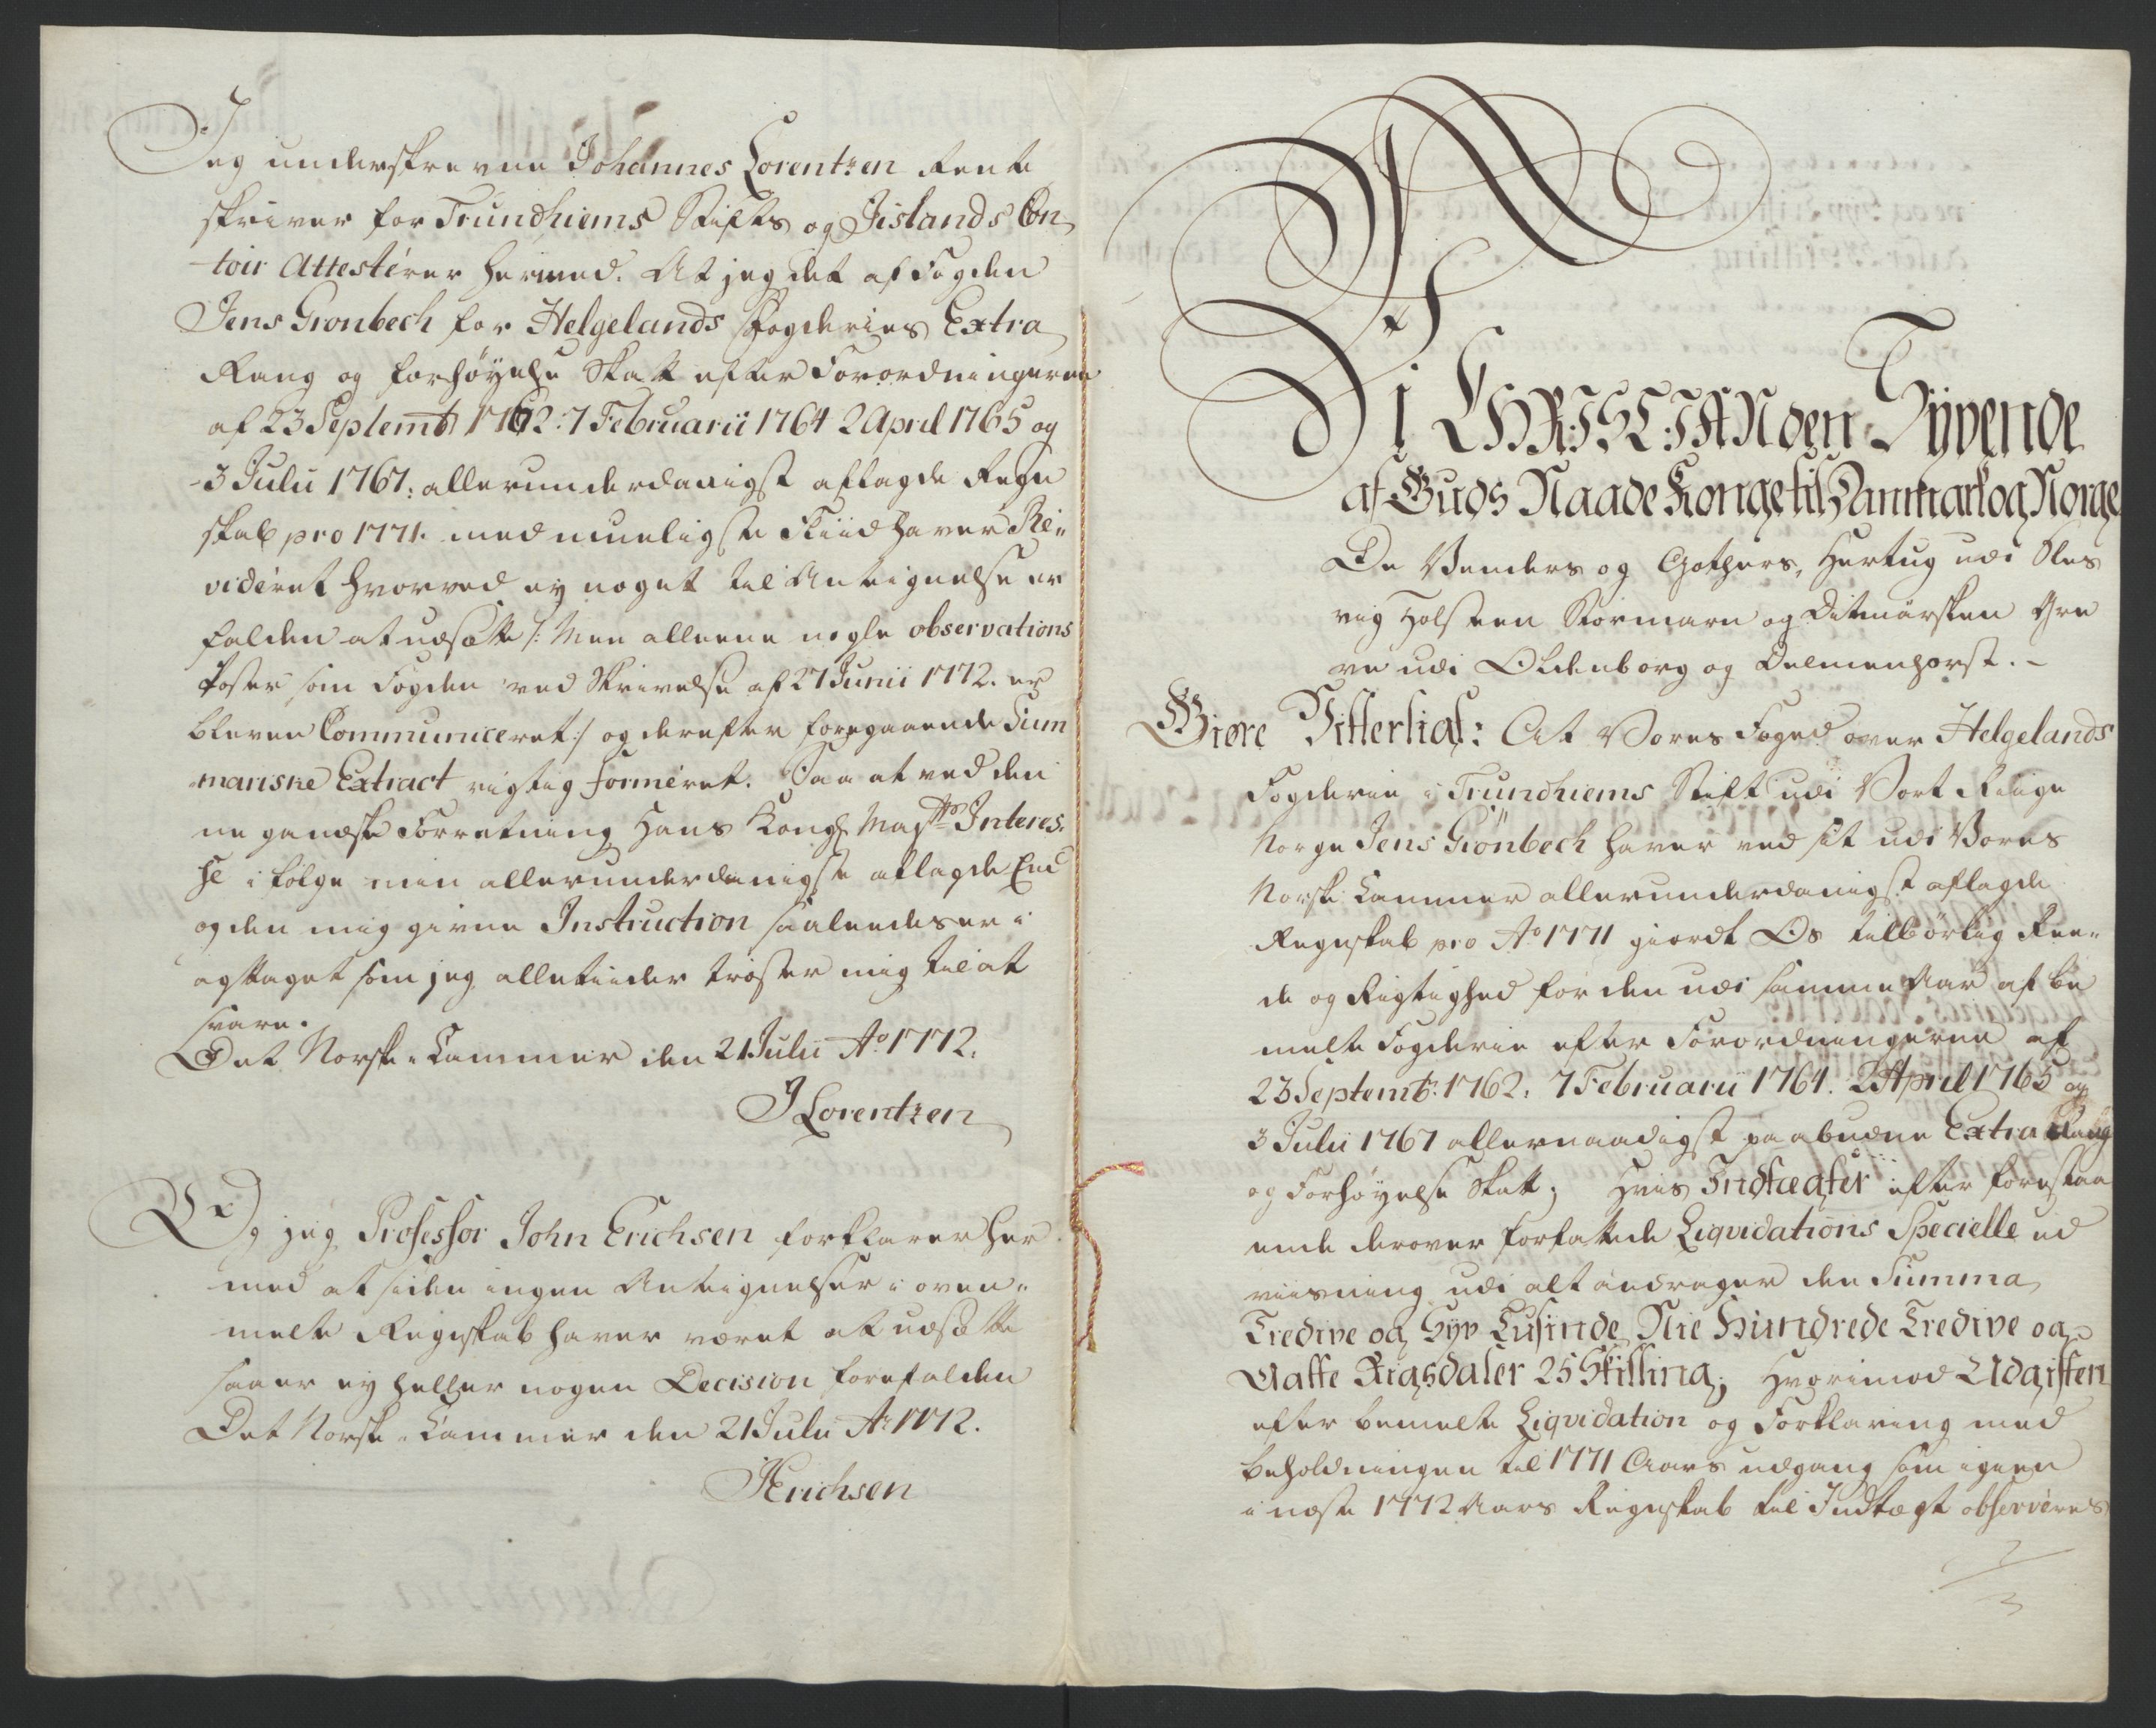 Jeg underskrevne Johannes Lorentzen Rente
skriver for Trundhiems Stifts og Jislands Con
toir Attesterer hermed. At jeg det af Fogden
Jens Gronbech for Helgelands Fogderies Extra
Rang og forhöyelse Skatt efter Forordningerne
af 23 Septemb 1762: 7 Februarii 1764 2 April 1765 og
3 Julii 1767: allerunderdanigst aflagde Regn
skab pro 1771. med mueligste Fliid haver Re„
videret hvorved ey noget til Antegnelse er
falden at udsætte /: Men alleene nogle observations
Poster som Fogden ved Skrivelse af 27 Junii 1772. er
bleven Communiceret :/ og derefter foregaaende Sum
mariske Extract rigtig formeret. Saa at ved den
ne gandske Forretning Hans Kongl Maytts Interes
se i følge min allerunderdanigste aflagde Eed
og den mig givne Instruction saaleedes er i
agttaget som jeg alletiider tröster mig til at
svare.
Det Norske Cammer den 21 Julii Ao 1772.
J Lorentzen
Og jeg Professor John Erichsen forklarer her
med at siden ingen Antegnelser i oven„
melte Regnskab haver været at udsætte
saa er ey heller nogen Decision forefalden
Det Norske Cammer den 21 Julii Ao 1772.
J Erichsen
Vi CHRISTIAN den Syvende
af Guds Naade Konge til Danmark og Norge
De Venders og Gothers, Hertug udi Sles
vig Holsteen Stormarn og Ditmarsken Gre
ve udi Oldenborg og Delmenhorst. –
Giøre Vitterligt: At Vores Foged over Helgelands
Fogderie i Trundhiems Stift udi Vort Riige
Norge Jens Grönbech haver ved sit udi Vores
Norske Cammer allerunderdanigst aflagde
Regnskab pro Ao 1771 giordt Os tilbörlig Ree„
de og Rigtighed for den udi samme Aar af be
melte Fogderie efter Forordningerne af
23 Septemb: 1762. 7 Februarii 1764. 2 April 1765 og
3 Julii 1767 allernaadigst paabudne Extra Rang
og Forhöyelse Skatt; Hvis Indtægter efter forestaa
ende derover forfattede Liqvidations Specielle ud
viisning udi alt andrager den Summa
Tredive og Syv Tusinde Nie Hundrede Tredive og
Aatte Rigsdaler 25 Skilling; Hvorimod Udgiften
efter bemelte Liqvidation og Forklaring med
beholdningen til 1771 Aars udgang som igien
i næste 1772 Aars Regnskab til Indtægt observeres
2/3